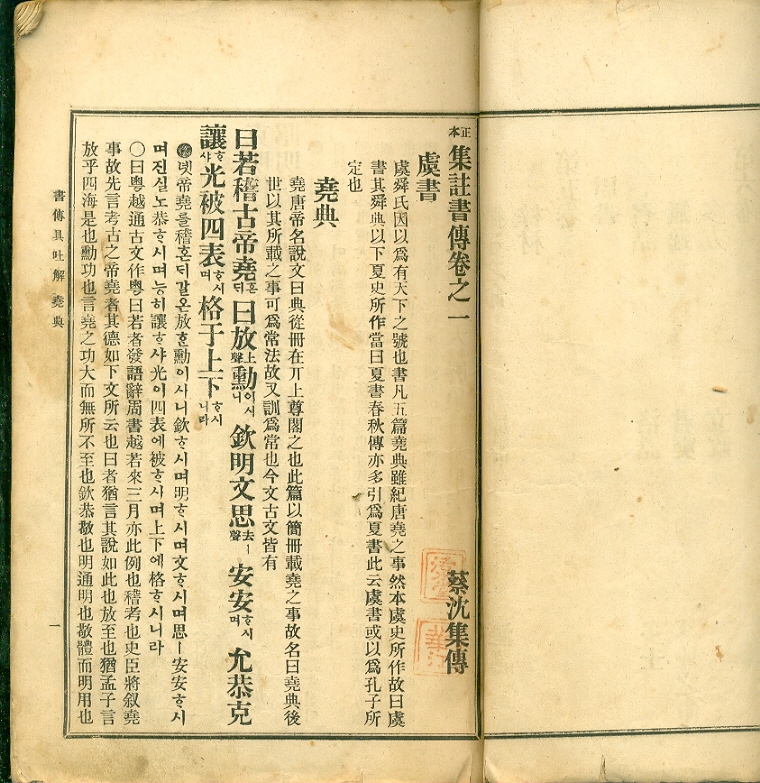 正本集註書傳卷之一
蔡沈集傳
虞書
虞舜氏因以爲有天下之號也書凡五篇堯典雖紀唐堯之事然本虞史所作故曰虞
書其舜典以下夏史所作當曰夏書春秋傳亦多引爲夏書此云虞書或以爲孔子所
定也
堯典
堯唐帝名說文曰典從冊在丌上尊閣之也此篇以簡冊載堯之事故名曰堯典後
世以其所載之事可爲常法故又訓爲常也今文古文皆有
曰若稽古帝堯ᄒᆞᆫ뒤曰放上聲勳이시니欽明文思去聲ㅣ安安ᄒᆞ시며允恭克
讓ᄒᆞ샤光被四表ᄒᆞ시며格于上下ᄒᆞ시니라
녯帝堯를稽혼뒤ᄀᆞᆯ온放ᄒᆞᆫ勳이시니欽ᄒᆞ시며明ᄒᆞ시며文ᄒᆞ시며思ㅣ安安ᄒᆞ시
며진실노恭ᄒᆞ시며능히讓ᄒᆞ샤光이四表에被ᄒᆞ시며上下에格ᄒᆞ시니라
〇曰粤越通古文作粤曰若者發語辭周書越若來三月亦此例也稽考也史臣將叙堯
事故先言考古之帝堯者其德如下文所云也曰者猶言其說如此也放至也猶孟子言
放乎四海是也勳功也言堯之功大而無所不至也欽恭敬也明通明也敬體而明用也
書傳具吐解 堯典
一